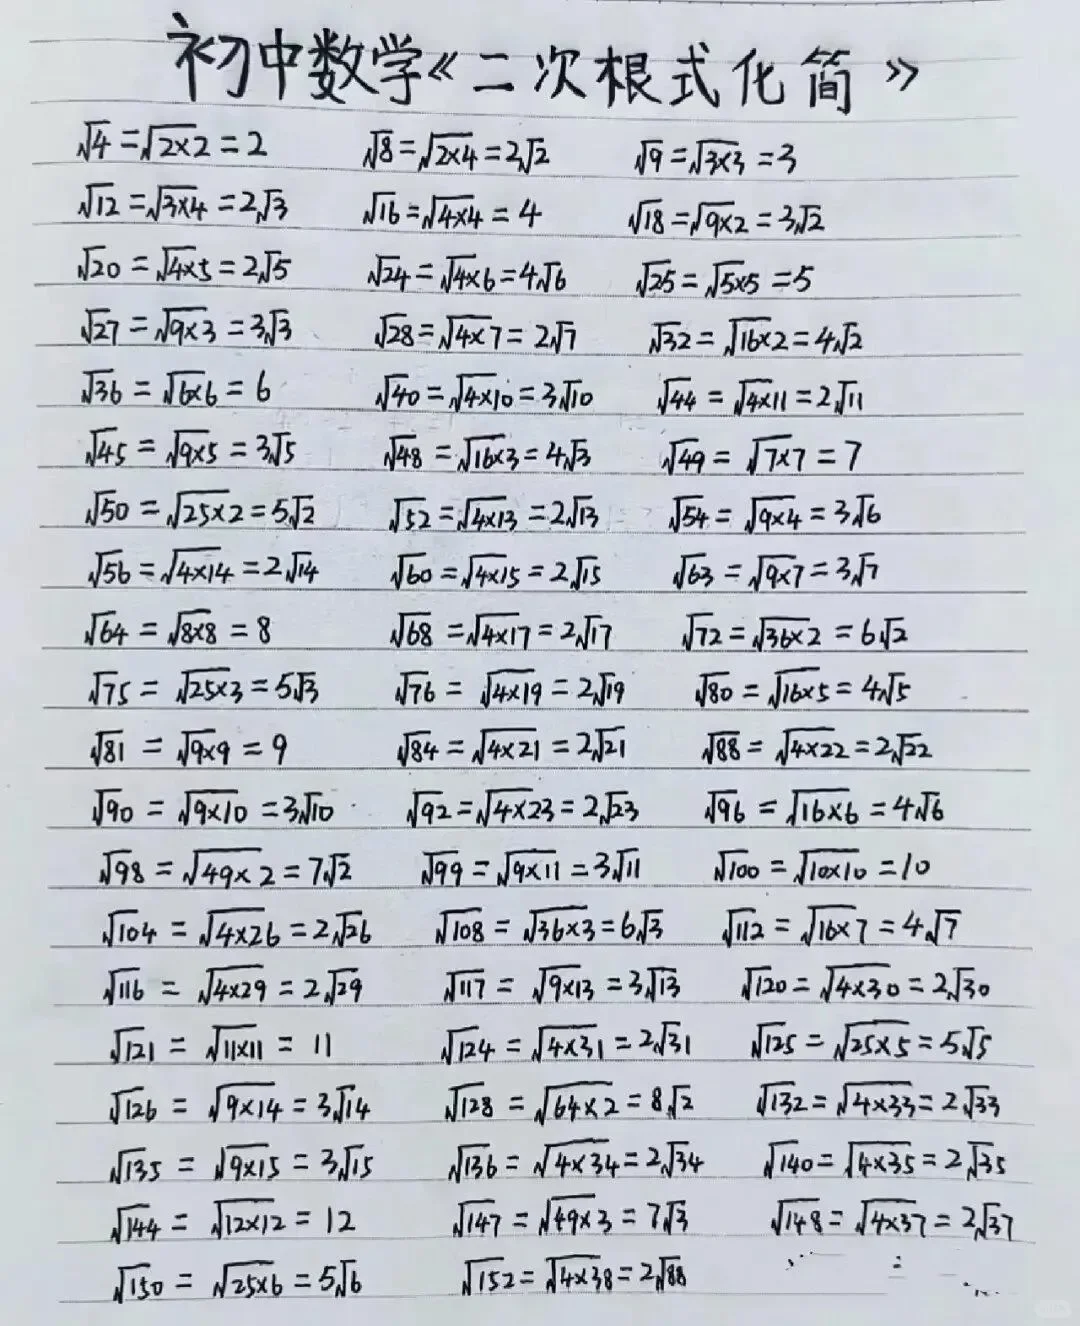 初中数学《二次根式化简》
√4=√2×2=2 √8=√2×4=2√2 √9=√3×3=3
√12=√3×4=2√3 √16=√4×4=4 √18=√9×2=3√2
√20=√4×5=2√5 √24=√4×6=4√6 √25=√5×5=5
√27=√9×3=3√3 √28=√4×7=2√7 √32=√16×2=4√2
√36=√6×6=6 √40=√4×10=3√10 √44=√4×11=2√11
√45=√9×5=3√5 √48=√16×3=4√3 √49=√7×7=7
√50=√25×2=5√2 √52=√4×13=2√13 √54=√9×4=3√6
√56=√4×14=2√14 √60=√4×15=2√15 √63=√9×7=3√7
√64=√8×8=8 √68=√4×17=2√17 √72=√36×2=6√2
√75=√25×3=5√3 √76=√4×19=2√19 √80=√16×5=4√5
√81=√9×9=9 √84=√4×21=2√21 √88=√4×22=2√22
√90=√9×10=3√10 √92=√4×23=2√23 √96=√16×6=4√6
√98=√49×2=7√2 √99=√9×11=3√11 √100=√10×10=10
√104=√4×26=2√26 √108=√36×3=6√3 √112=√16×7=4√7
√116=√4×29=2√29 √117=√9×13=3√13 √120=√4×30=2√30
√121=√11×11=11 √124=√4×31=2√31 √125=√25×5=5√5
√126=√9×14=3√14 √128=√64×2=8√2 √132=√4×33=2√33
√135=√9×15=3√15 √136=√4×34=2√34 √140=√4×35=2√35
√144=√12×12=12 √147=√49×3=7√3 √148=√4×37=2√37
√150=√25×6=5√6 √152=√4×38=2√88